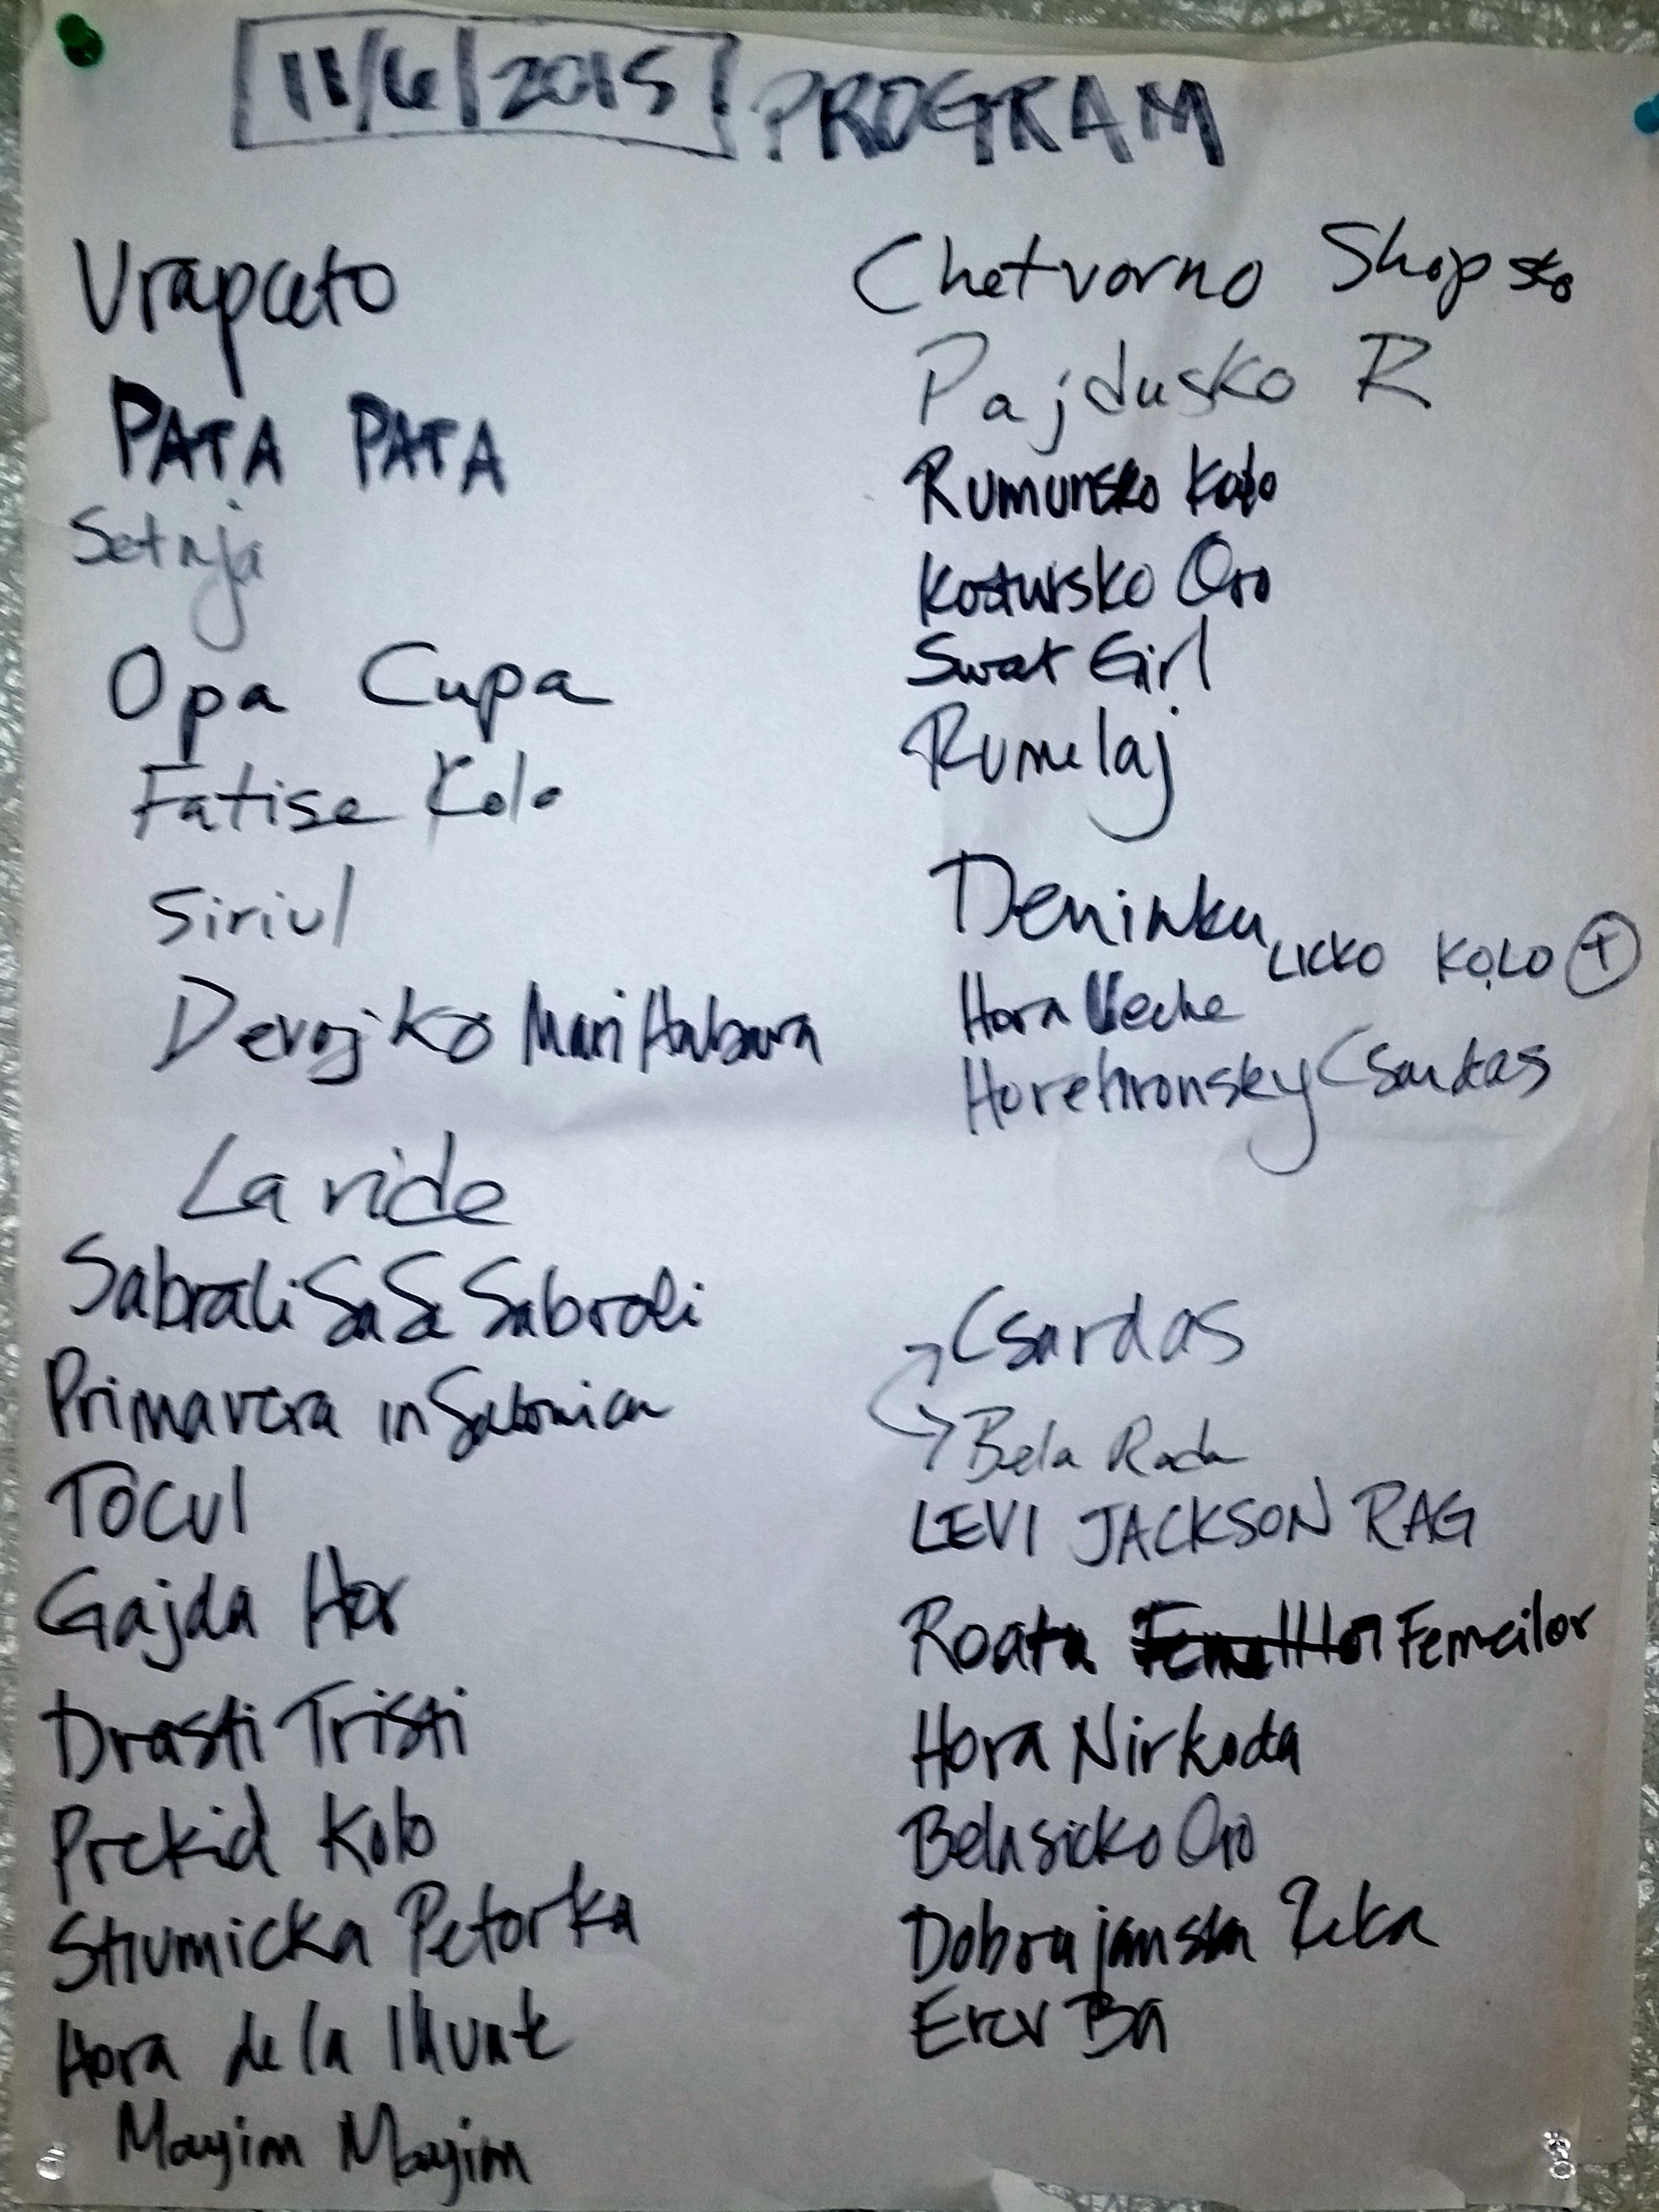 11/6/2015 PROGRAM
Vrapceto
PATA PATA
Setnja
Opa Cupa
Fatise Kolo
Siriul
Devojko Mari Hubava
La ride
Sabrali Sa Se Sabrali
Primavera in Salonica
TOCUL
Gajda Hor
Drasti Tristi
Prekid Kolo
Strumicka Petorka
Hora de la Munte
Mayim Mayim
Chetvorno Shopsko
Pajdusko R
Rumunsko Kolo
Kostursko Oro
Swat Girl
Rumelaj
Deninku
LICKO KOLO +
Hora Veche
Horehronsky Csardas
Csardas
Bela Rada
LEVI JACKSON RAG
Roata Femeilor
Hora Nirkoda
Belasicko Oro
Dobrujanska Reka
Erev Ba